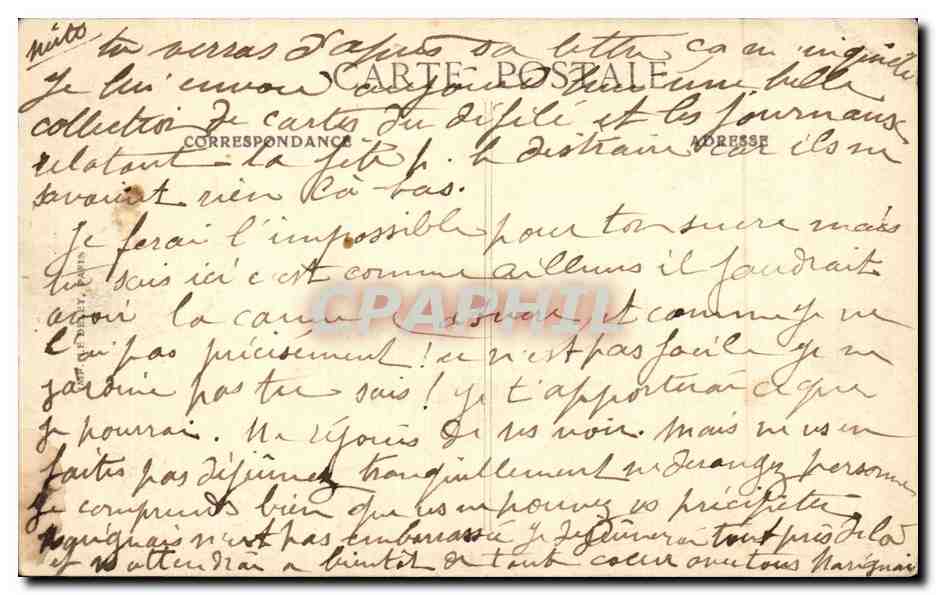 tu verras d'après sa lettre ça m'inquiète
CARTE POSTALE
Je lui envoie aujourd'hui une belle
collection de cartes du défilé et les journaux
CORRESPONDANCE
ADRESSE
relatant la fête p. le distraire car ils ne
savaient rien là-bas.
Je ferai l'impossible pour ton sucre mais
tu sais ici c'est comme ailleurs il faudrait
avoir la carte et comme je ne
l'ai pas précisément! ce n'est pas facile je ne
jardine pas tu sais! Je t'apporterai ce que
je pourrai. Me réjouis de vs voir. Mais ne vs en
faites pas déjeûnez tranquillement ne derangez personne
Je comprends bien que vs ne pouvez vs précipiter
Marignais n'est pas embarrassée je dejeûnerai tout près de là
et vs attendrai a bientôt de tout coeur avec tous Marignais
CPAPHIL